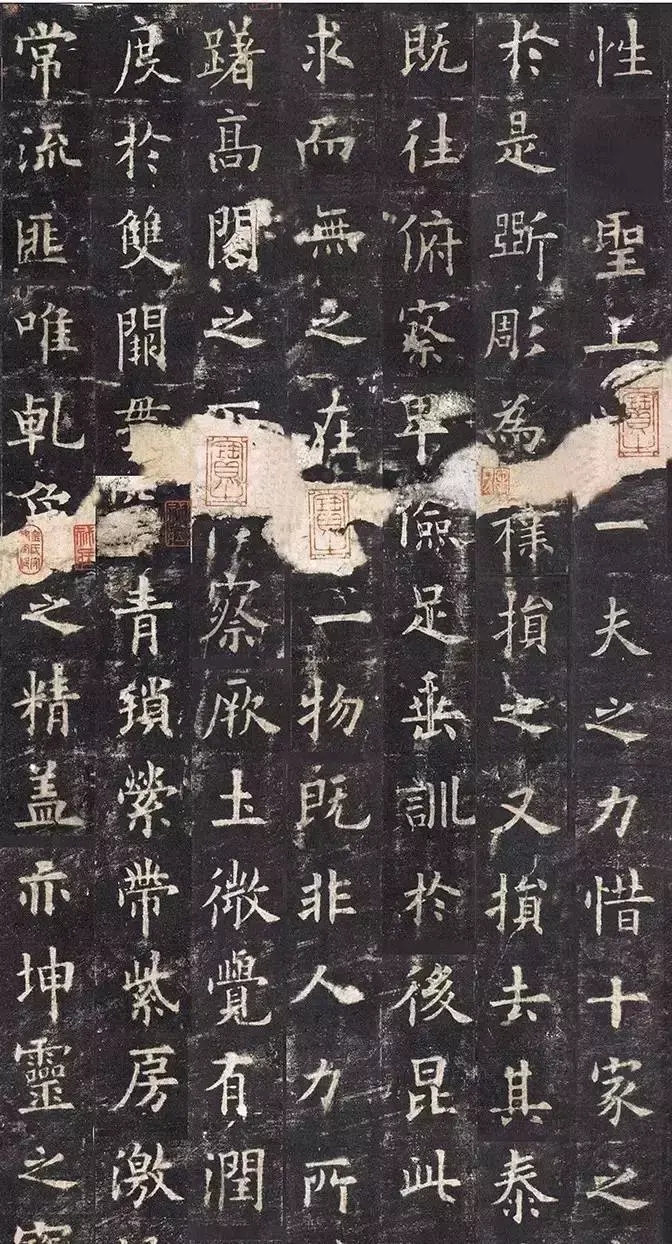 性 聖上 一夫之力惜十家之
於是斵彫為樸損之又損去其泰
既往俯察卑儉足垂訓於後昆此
求而無之在一物既非人力所
躇高閣之察厥土微覺有潤
度於雙闕青瑣縈帶紫房激
常流匪唯乾之精盖亦坤靈之寶